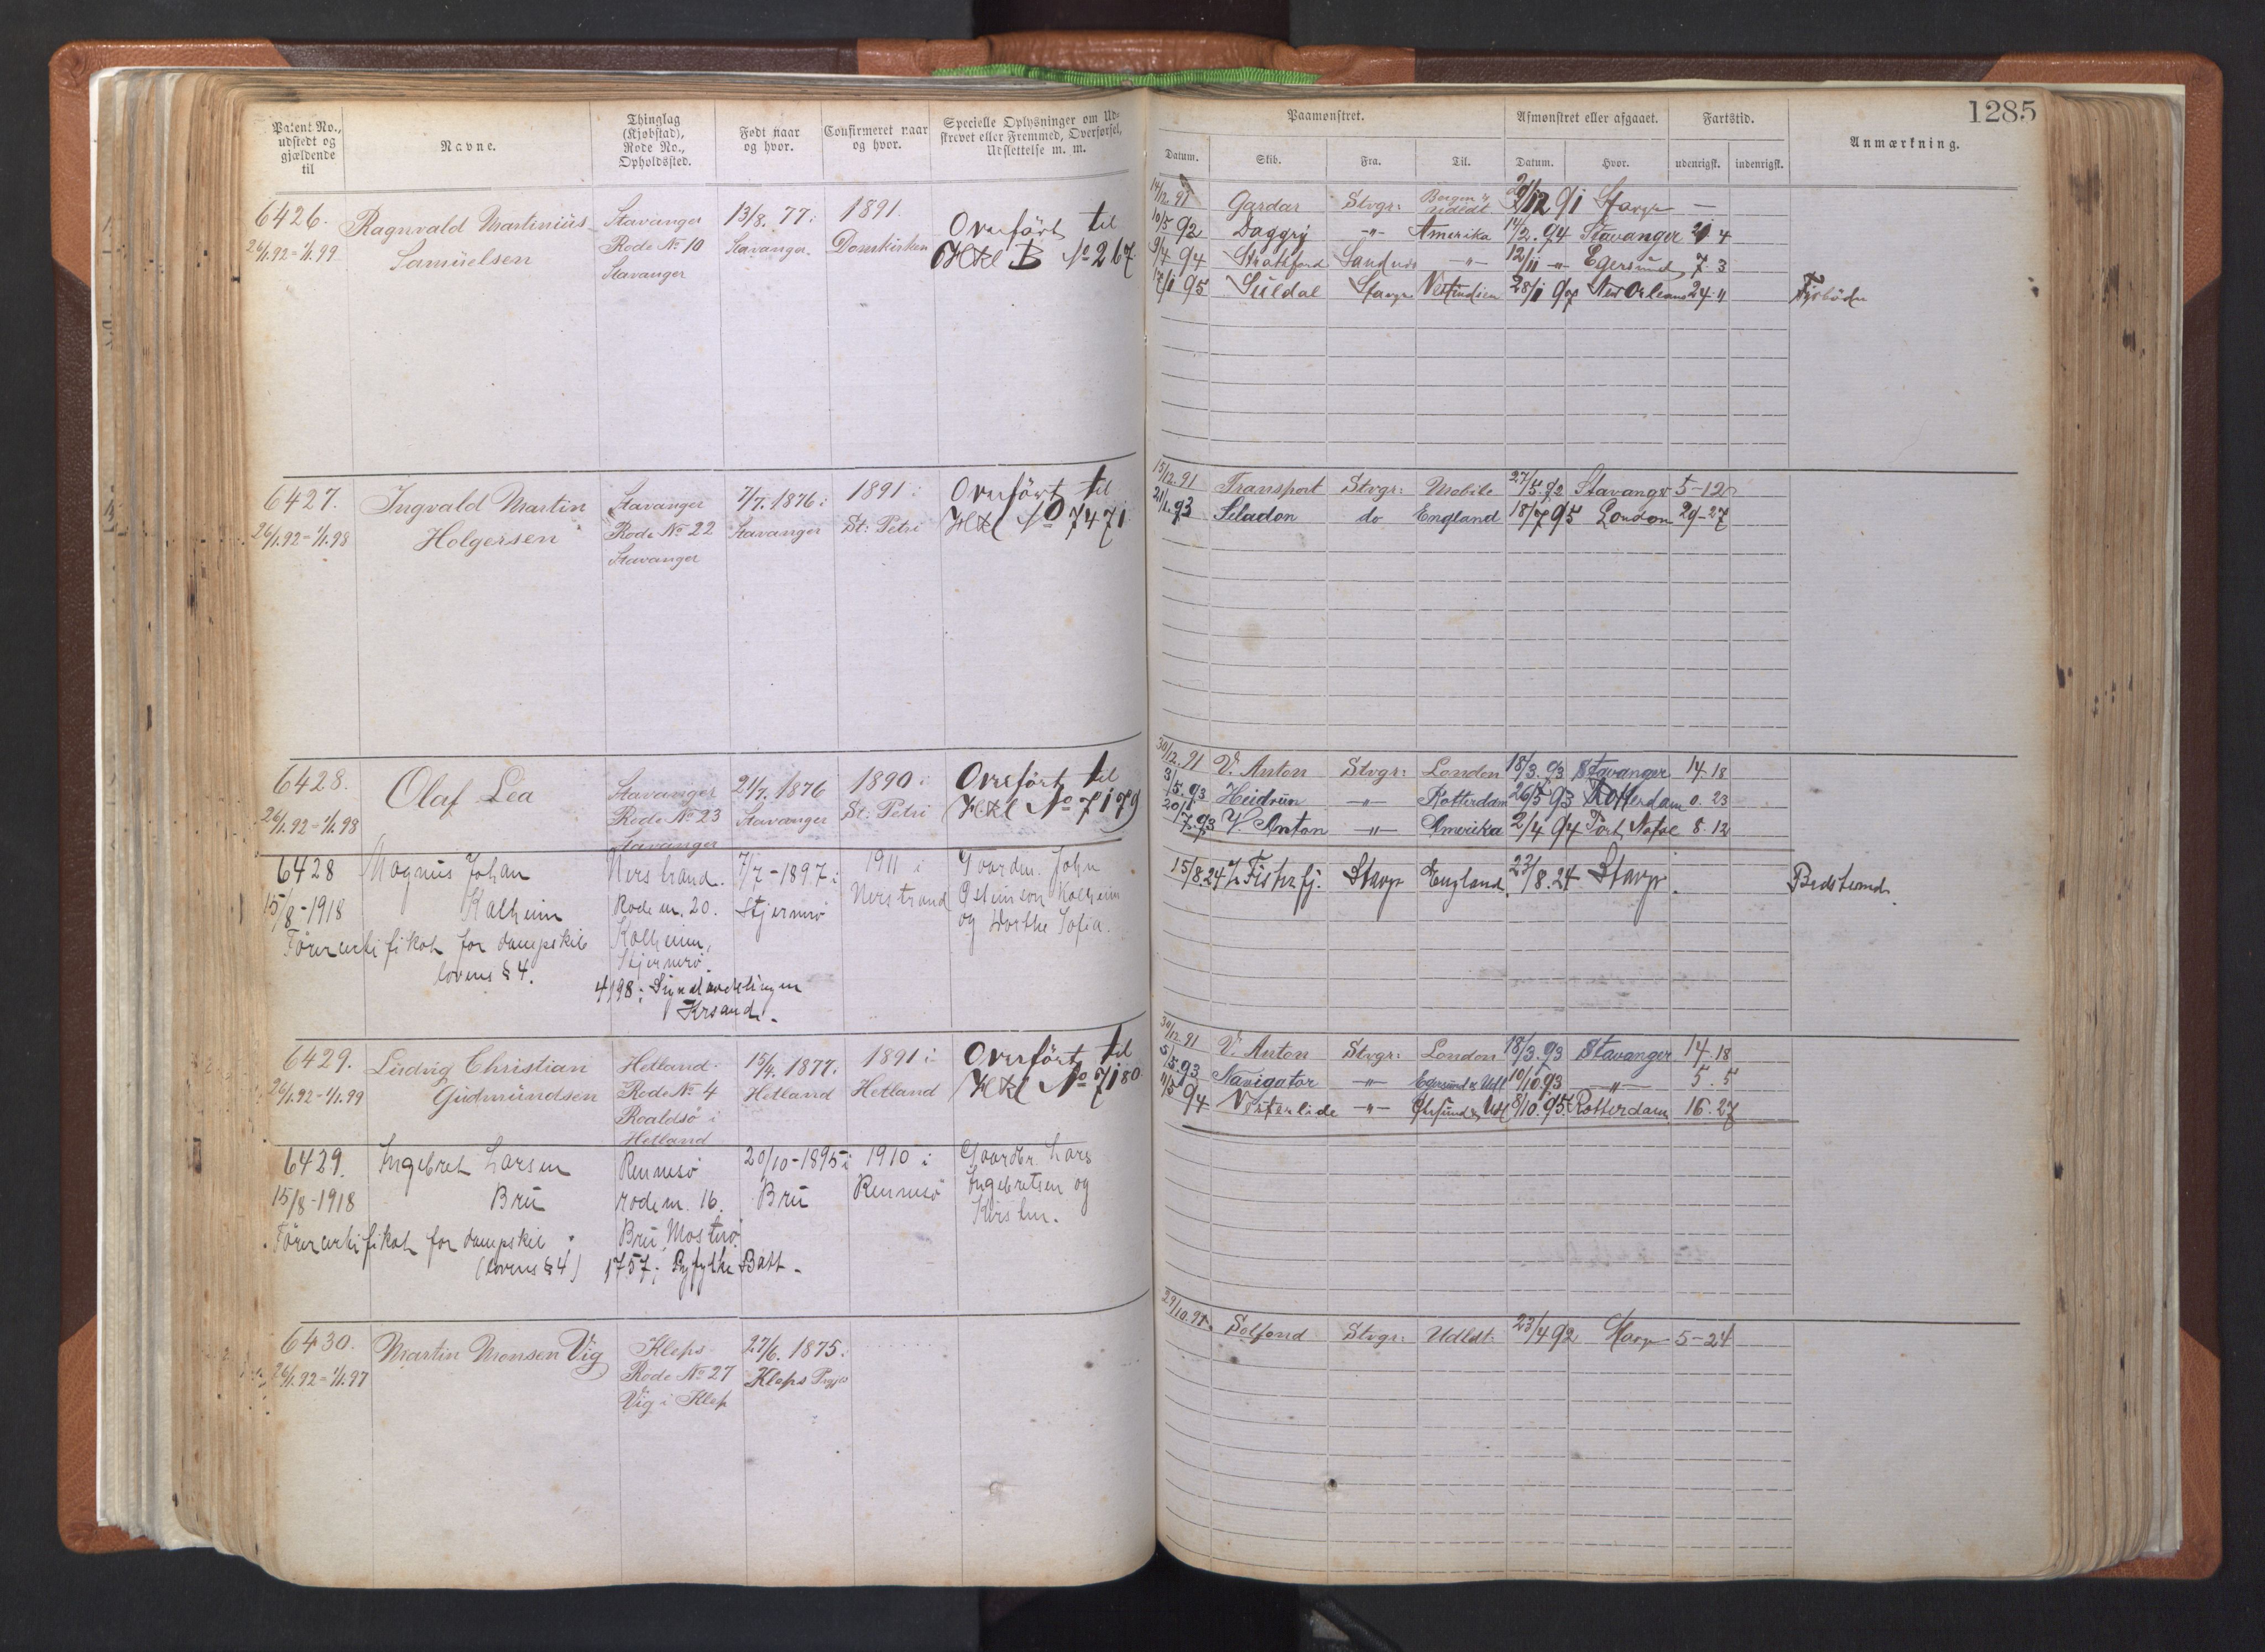 1285
Patent No., udstedt og gjældende til
Navne.
Thinglag (Kjøbstad), Rode No., Opholdssted.
Født naar og hvor.
Confirmeret naar og hvor.
Specielle Oplysninger om Udskrevet eller Fremmed, Overførsel, Udslettelse m. m.
Paamønstret.
Afmønstret eller afgaaet.
Fartstid.
Anmærkning.
Datum.
Skib.
Fra.
Til.
Datum.
Hvor.
udenrigsk.
indenrigsk.
6426.
26/1.92 = 1/1.99
Ragnvald Martinius
Samüelsen
Stavanger
Rode No 10
Stavanger
13/8. 77 i
Stavanger.
1891.
Domkirken
Overført til
Htl B No 267
14/12.91 Gardar Stvgr: Bergen & Udldt 12 91 Stavgr —
10/5 92 Daggry -"- Amerika 14/2.94 Stavanger 21 4
9/4 94 Sandnes -"- 12/11 -"- Egersund 7 3
95 Süldal Stavgr Vestindien 28/1 97 New Orleans 24 11
Fyrbøder
6427.
26/1.92 = 1/1.98
Ingvald Martin
Holgersen
Stavanger
Rode No 22
Stavanger
7/7. 1876 i
Stavanger
1891 i
St: Petri
Overført til
Htl No 7471
15/12.91 Transport Stvgr: Mobile 27/5.92 Stavangr 5-12
21/1.93 Seladon do England 18/7 95 London 29-27
6428.
26/1.92 = 1/1.98
Olaf Lea
Stavanger
Rode No 23
Stavanger
21/7. 1876
Stavanger
1890 i
St: Petri
Overført til
Htl No 7179
30/12.91 V. Anton Stvgr: London 18/3.93 Stavanger 14.18
3/5.93 Heidrün -"- Rotterdam 26/5 93 Rotterdam 0. 23
20/7.93 V. Anton -"- Amerika 2/4 94 Port Natal 8. 12
6428
15/8-1918
Magnus Johan
Kalheim
Førercertifikat for dampskib
lovens § 4.
Nerstrand.
Rode nr. 20.
Kalheim,
Stjernerø.
4198;
Krsand.
7/7-1897 i
Stjernerø
1911 i
Nerstrand
Gaardm. John
Østeinson Kalheim
og Dorthe Sofia.
15/8.24 Stavgr England 23/8.24 Stavgr.
Bedstemd.
6429.
26/1.92 = 1/1.99
Ludvig Christian
Gudmündsen
Hetland.
Rode No 4
Roaldsø i
Hetland
15/4. 1877.
Hetland
1891 i
Hetland
Overført til
Htl No 7180
30/12.91 V. Anton Stvgr: London 18/3.93 Stavanger 14.18
5/5.93 Navigator -"- Egersund & Udl 10/10.93 -"- 5. 5
94 Vesterlide -"- 8/10.95 Rotterdam 16.27
6429.
15/8-1918
Ingebret Larsen
Brü
Førercertifikat for dampskib
(lovens § 4)
Rennesø
rode nr. 16.
Brü, Mosterø
1757; Ryfylke Batt.
20/10-1895 i
Brü
1910 i
Rennesø
Gaardbr. Lars
Ingebretsen og
Kirsten.
6430.
26/1.92 = 1/1.97
Martin Monsen Vig
Klepp
Rode No 27
Vig i Klep
27/6. 1875.
Kleps Prgjl
29/10.91. Solfond Stvgr: Udldt. 23/4 92 Stavgr 5-24